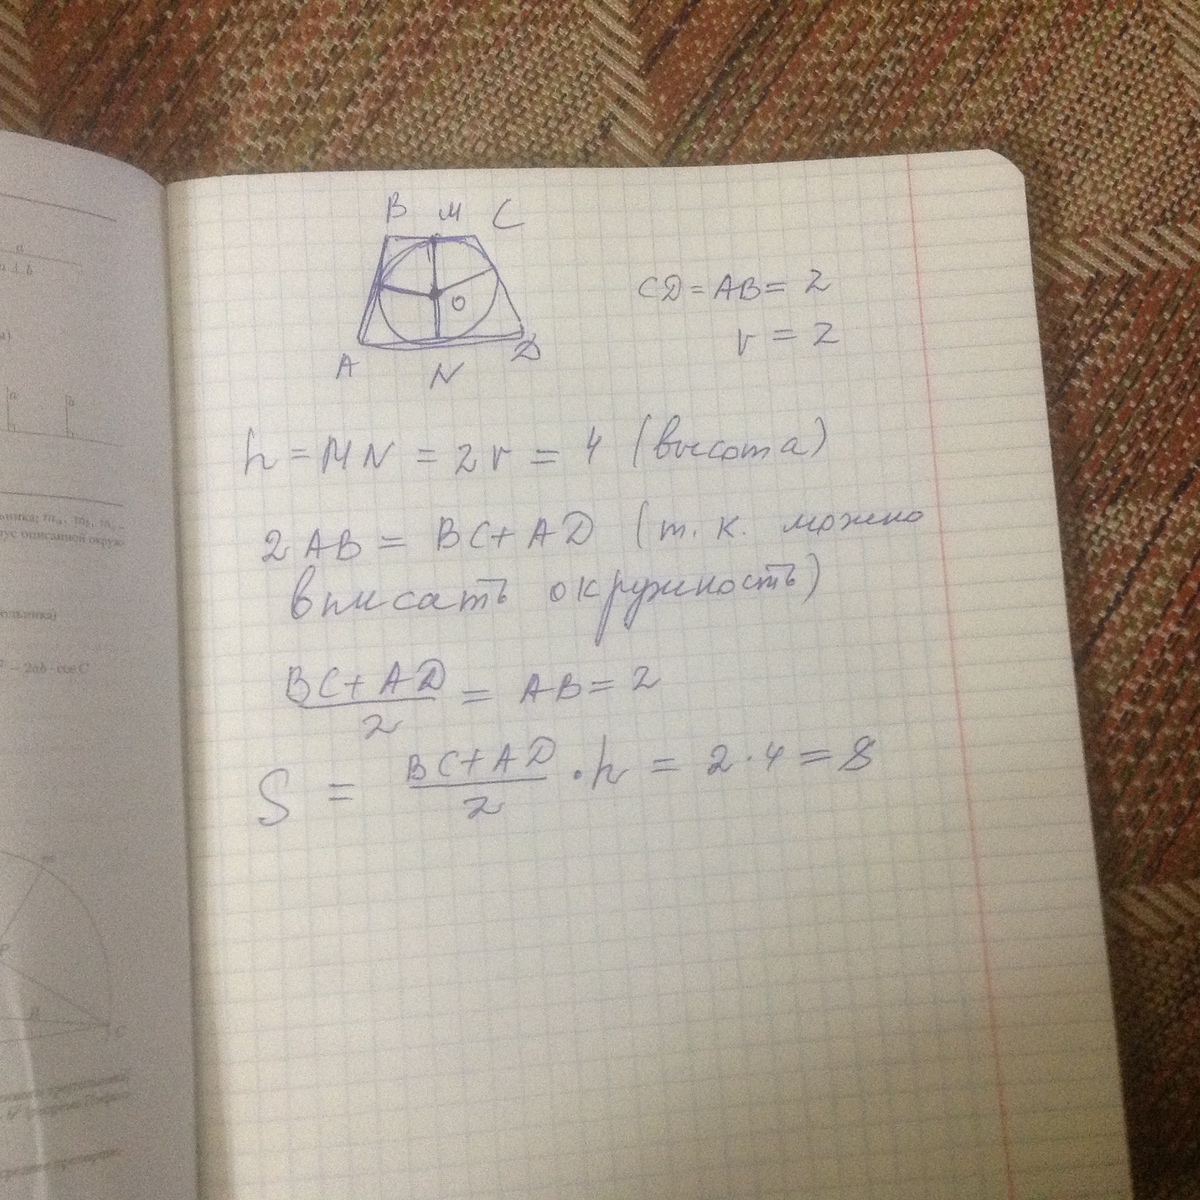 B M C
O
A N D
CD = AB = 2
r = 2
h = MN = 2r = 4 (высота)
2AB = BC + AD (т.к. можно
вписать окружность)
BC + AD / 2 = AB = 2
S = BC + AD / 2 · h = 2 · 4 = 8
a
a
b
ус описанной окруж
- 2ab · cos C
m
P
β
C